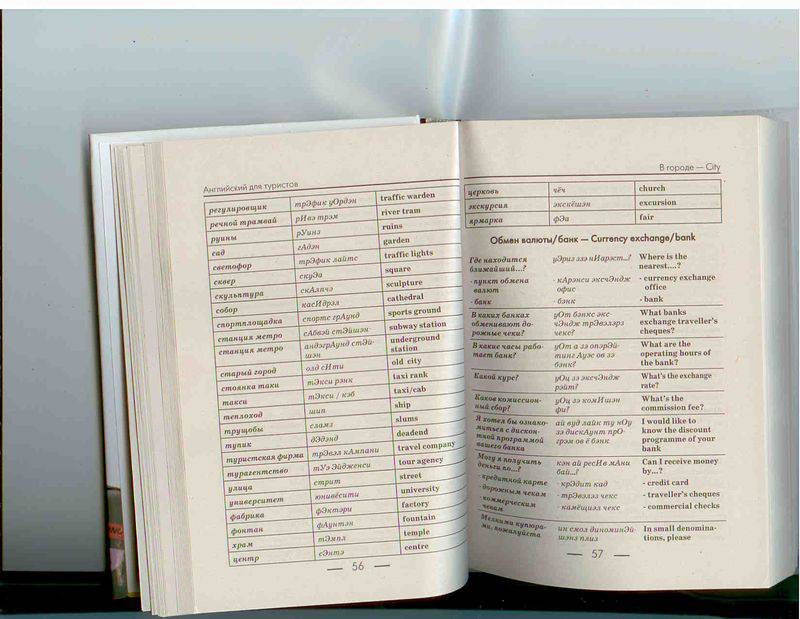 Английский для туристов
регулировщик трЭфик уОрдэн traffic warden
речной трамвай рИвэ трэм river tram
руины рУинз ruins
сад гАдэн garden
светофор трЭфик лайтс traffic lights
сквер скуЭа square
скульптура скАлпчэ sculpture
собор касИдрэл cathedral
спортплощадка спортс грАунд sports ground
станция метро сАбвэй стЭйшэн subway station
станция метро андэгрАунд стЭй- underground
шэн station
старый город олд сИти old city
стоянка такси тЭкси рэнк taxi rank
такси тЭкси / кэб taxi/cab
теплоход шип ship
трущобы сламз slums
тупик дЭдэнд deadend
туристская фирма трЭвэл кАмпани travel company
турагентство тУэ Эйдженси tour agency
улица стрит street
университет юнивёсити university
фабрика фЭктэри factory
фонтан фАунтэн fountain
храм тЭмпл temple
центр сЭнтэ centre
— 56 —
В городе — City
церковь чёч church
экскурсия экскёшэн excursion
ярмарка фЭа fair
Обмен валюты/банк — Currency exchange/bank
Где находится уЭриз ззэ нИарэст..? Where is the
ближайший...? nearest....?
- пункт обмена - кАрэнси эксчЭндж - currency exchange
валют офис office
- банк - бэнк - bank
В каких банках уОт бэнкс экс- What banks
обменивают до- чЭндж трЭвэлэрз exchange traveller's
рожные чеки? чекс? cheques?
В какие часы рабо- уОт а ззэ опэрЭй- What are the
тает банк? тинг Ауэс ов зэ operating hours of
бэнк? the bank?
Какой курс? уОц зэ эксчЭндж What's the exchange
рэйт? rate?
Каков комиссион- уОц зэ комИшэн What's the
ный сбор? фи? commission fee?
Я хотел бы ознако- ай вуд лайк ту нОу I would like to
миться с дискон- зэ дискАунт прО- know the discount
тной программой грэм ов ё бэнк programme of your
вашего банка bank
Могу я получить кэн ай ресИв мАни Can I receive money
деньги по...? бай...? by...?
- кредитной карте - крЭдит кад - credit card
- дорожным чекам - трЭвэлэз чекс - traveller's cheques
- коммерческим - камёщиэл чекс - commercial checks
чекам
Мелкими купюра- ин смол диноминЭй- In small denomina-
ми, пожалуйста шэнз плиз tions, please
— 57 —